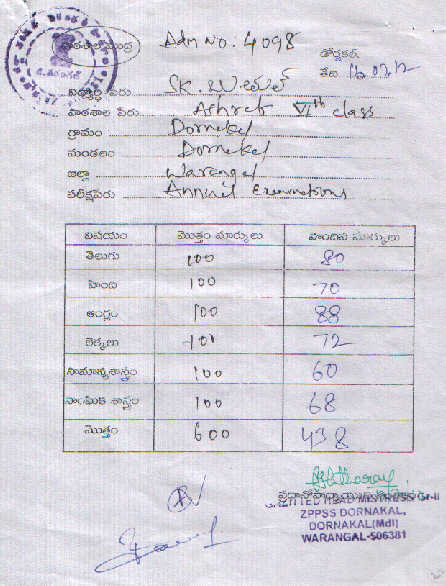 పాఠశాల ముద్ర Adm No: 4098
డోర్నకల్
తేది 16.07.12
విద్యార్థి పేరు SK.
పాఠశాల పేరు Ashret VIth class
గ్రామం Dornakal
మండలం Dornakal
జిల్లా Warangal
పరీక్షపేరు Annual Examinations
విషయం మొత్తం మార్కులు పొందిన మార్కులు
తెలుగు 100 80
హింది 100 70
ఆంగ్లం 100 88
లెక్కలు 100 72
సామాన్యశాస్త్రం 100 60
సాంఘిక శాస్త్రం 100 68
మొత్తం 600 438
HEAD MISTRESS Gr-II
ZPPSS DORNAKAL,
DORNAKAL(Mdl)
WARANGAL-506381